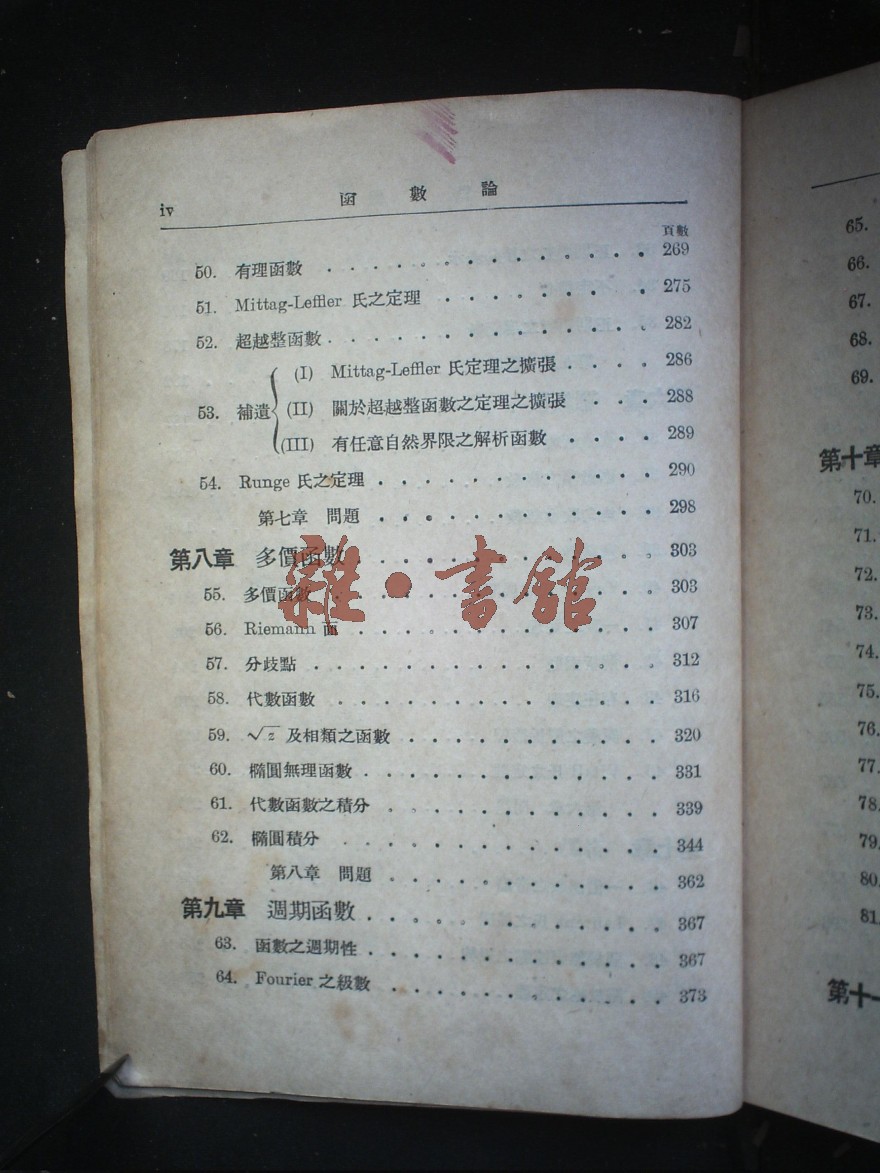 iv 函數論
頁數
50. 有理函數 269
51. Mittag-Leffler 氏之定理 275
52. 超越整函數 282
(I) Mittag-Leffler 氏定理之擴張 286
53. 補遺 (II) 關於超越整函數之定理之擴張 288
(III) 有任意自然界限之解析函數 289
54. Runge 氏之定理 290
第七章 問題 298
第八章 多價函數 303
55. 多價函數 303
56. Riemann 面 307
57. 分歧點 312
58. 代數函數 316
59. √z 及相類之函數 320
60. 橢圓無理函數 331
61. 代數函數之積分 339
62. 橢圓積分 344
第八章 問題 362
第九章 週期函數 367
63. 函數之週期性 367
64. Fourier 之級數 373
雜·書館
65.
66.
67.
68.
69.
第十章
70.
71.
72.
73.
74.
75.
76.
77.
78.
79.
80.
81.
第十一